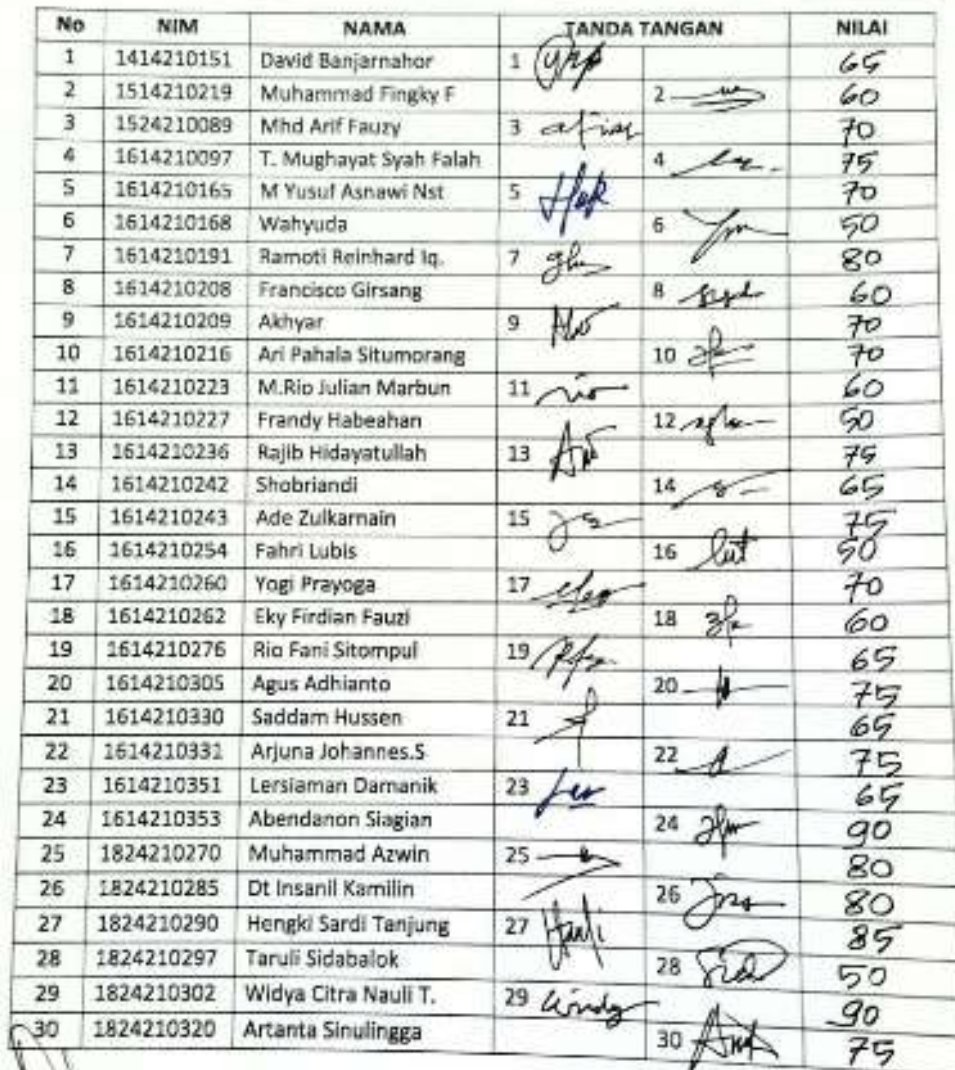 No NIM NAMA TANDA TANGAN NILAI
1 1414210151 David Banjarnahor 1 65
2 1514210219 Muhammad Fingky F 2 60
3 1524210089 Mhd Arif Fauzy 3 70
4 1614210097 T. Mughayat Syah Falah 4 75
5 1614210165 M Yusuf Asnawi Nst 5 70
6 1614210168 Wahyuda 6 50
7 1614210191 Ramoti Reinhard Iq. 7 80
8 1614210208 Francisco Girsang 8 60
9 1614210209 Akhyar 9 70
10 1614210216 Ari Pahala Situmorang 10 70
11 1614210223 M.Rio Julian Marbun 11 rio 60
12 1614210227 Frandy Habeahan 12 50
13 1614210236 Rajib Hidayatullah 13 75
14 1614210242 Shobriandi 14 65
15 1614210243 Ade Zulkarnain 15 75
16 1614210254 Fahri Lubis 16 50
17 1614210260 Yogi Prayoga 17 70
18 1614210262 Eky Firdian Fauzi 18 60
19 1614210276 Rio Fani Sitompul 19 65
20 1614210305 Agus Adhianto 20 75
21 1614210330 Saddam Hussen 21 65
22 1614210331 Arjuna Johannes.S 22 75
23 1614210351 Lersiaman Damanik 23 65
24 1614210353 Abendanon Siagian 24 90
25 1824210270 Muhammad Azwin 25 80
26 1824210285 Dt Insanil Kamilin 26 80
27 1824210290 Hengki Sardi Tanjung 27 85
28 1824210297 Taruli Sidabalok 28 50
29 1824210302 Widya Citra Nauli T. 29 90
30 1824210320 Artanta Sinulingga 30 75